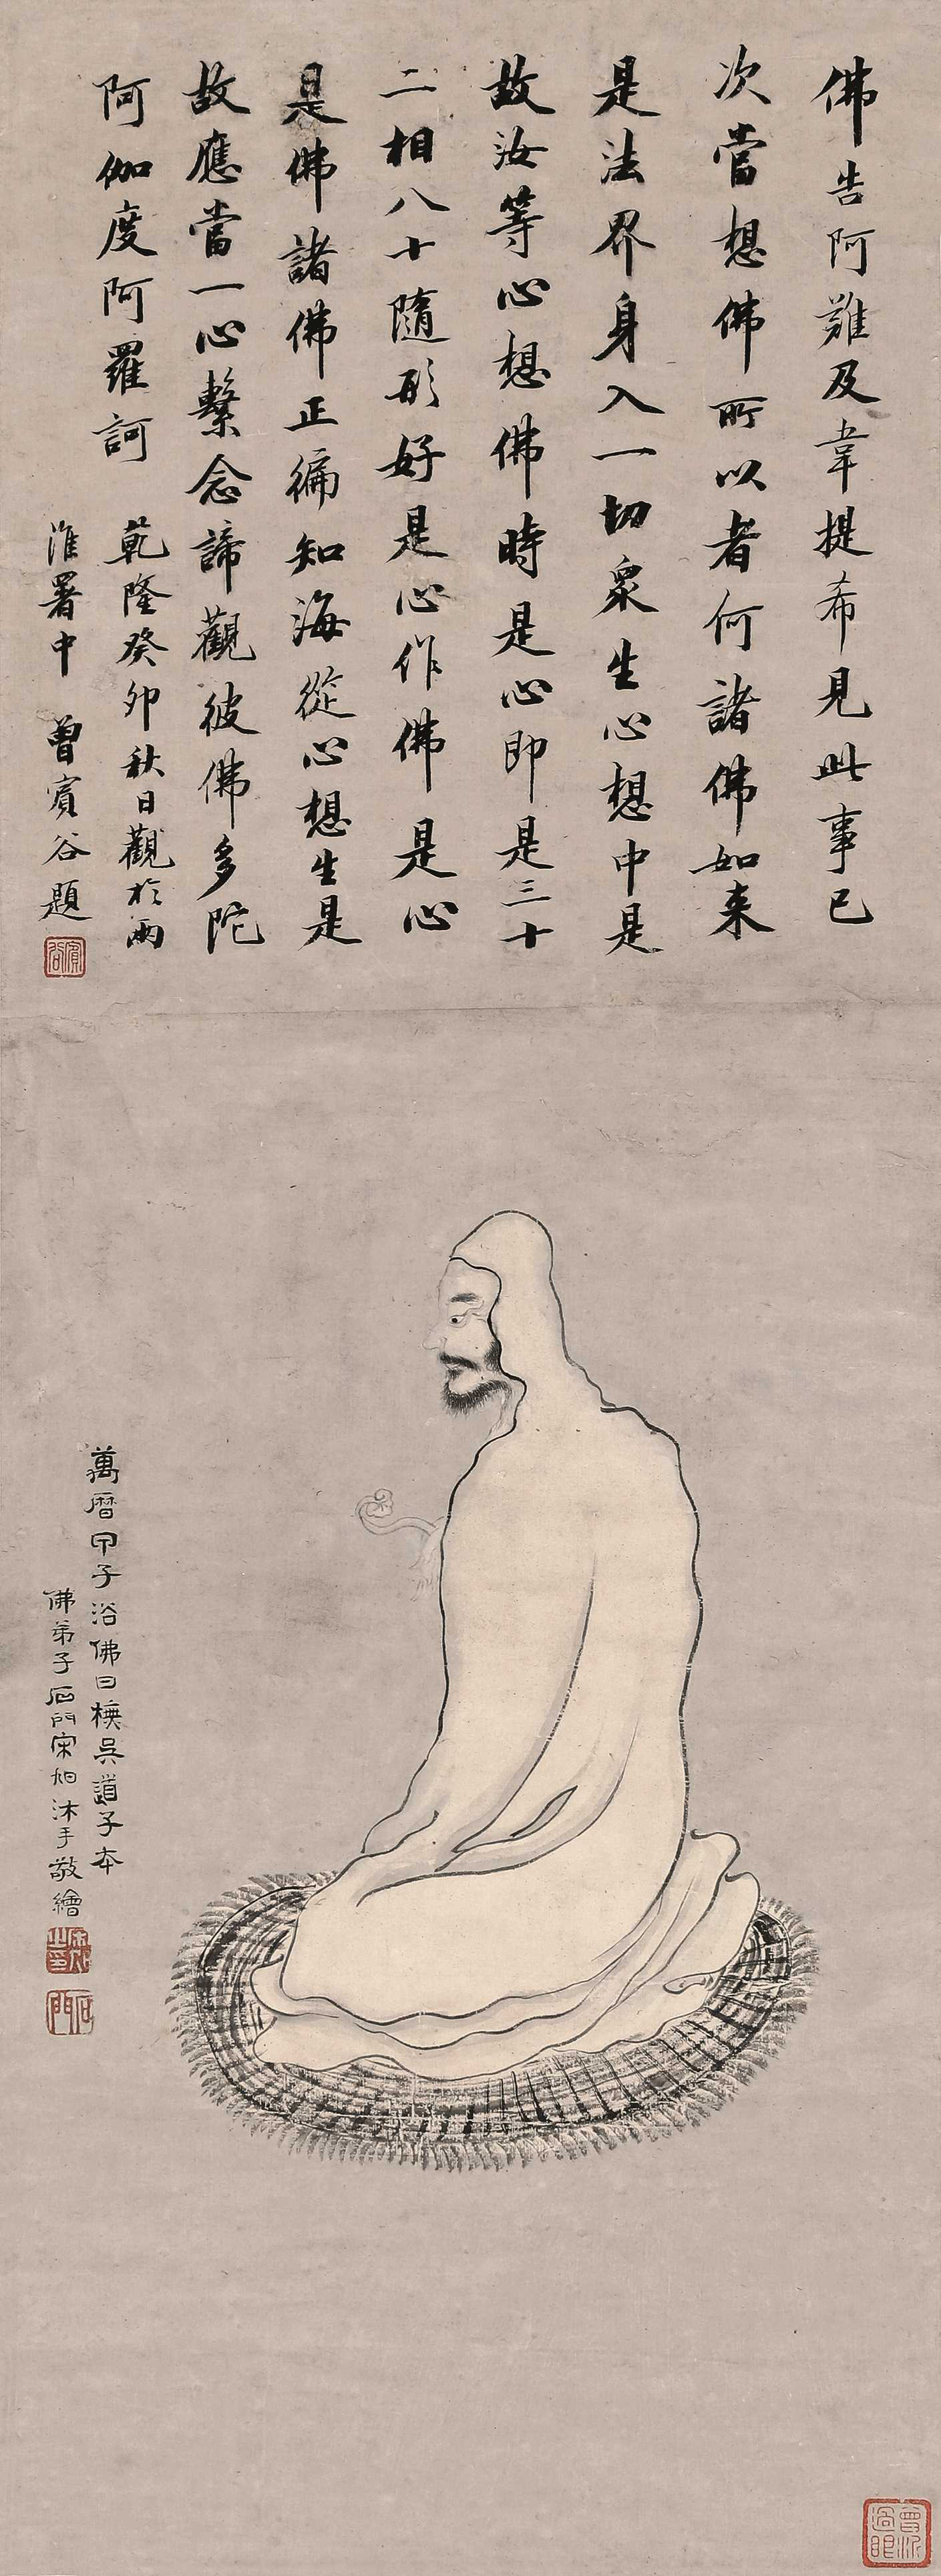 佛告阿難及韋提希見此事已
次當想佛所以者何諸佛如来
是法界身入一切衆生心想中是
故汝等心想佛時是心即是三十
二相八十隨形好是心作佛是心
是佛諸佛正徧知海從心想生是
故應當一心繫念諦觀彼佛多陀
阿伽度阿羅訶
乾隆癸卯秋日觀於兩
淮署中 曾賓谷題
賓谷
萬曆甲子浴佛日橅吳道子本
佛弟子石門宋旭沐手敬繪
宋旭之印
石門